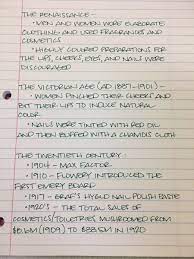 THE RENAISSANCE –
• MEN AND WOMEN WORE ELABORATE
CLOTHING AND USED FRAGRANCES AND
COSMETICS
• HIGHLY COLORED PREPARATIONS FOR
THE LIPS, CHEEKS, EYES, AND NAILS WERE
DISCOURAGED
THE VICTORIAN AGE (AD 1837-1901) –
• WOMEN PINCHED THEIR CHEEKS AND
BIT THEIR LIPS TO INDUCE NATURAL
COLOR
• NAILS WERE TINTED WITH RED OIL
AND THEN BUFFED WITH A CHAMOIS CLOTH
THE TWENTIETH CENTURY –
• 1904 – MAX FACTOR
• 1910 – FLOWERY INTRODUCED THE
FIRST EMERY BOARD
• 1917 – GRAF'S HYGLO NAIL POLISH PASTE
• 1920'S – THE TOTAL SALES OF
COSMETICS/TOILETRIES MUSHROOMED FROM
(1909) TO IN 1920